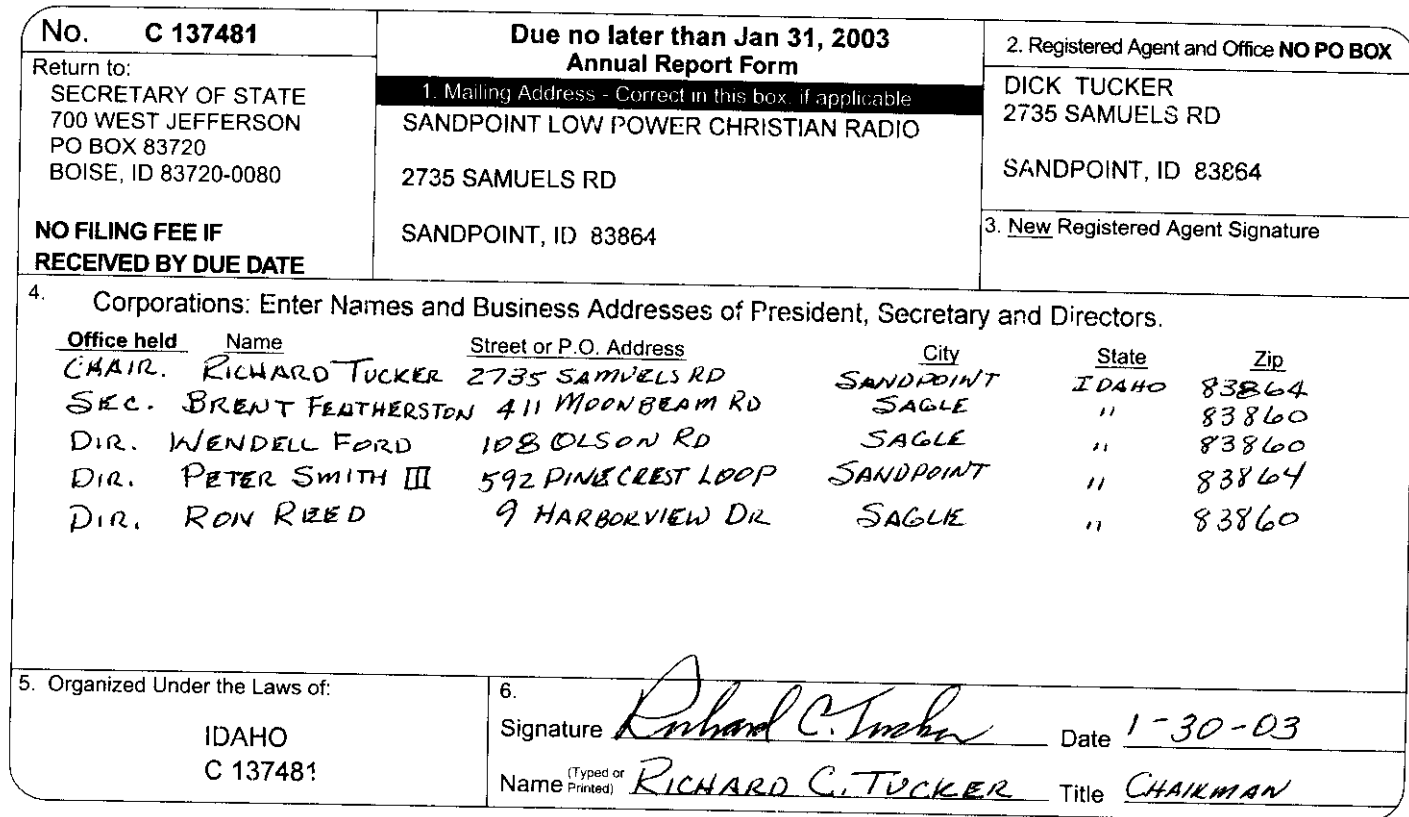 No. C 137481
Return to:
SECRETARY OF STATE
700 WEST JEFFERSON
PO BOX 83720
BOISE, ID 83720-0080
NO FILING FEE IF
RECEIVED BY DUE DATE
Due no later than Jan 31, 2003
Annual Report Form
1. Mailing Address - Correct in this box, if applicable
SANDPOINT LOW POWER CHRISTIAN RADIO
2735 SAMUELS RD
SANDPOINT, ID 83864
2. Registered Agent and Office NO PO BOX
DICK TUCKER
2735 SAMUELS RD
SANDPOINT, ID 83864
3. New Registered Agent Signature
4. Corporations: Enter Names and Business Addresses of President, Secretary and Directors.
Office held Name Street or P.O. Address City State Zip
CHAIR. RICHARD TUCKER 2735 SAMUELS RD SANDPOINT IDAHO 83864
SEC. BRENT FEATHERSTON 411 MOONBEAM RD SAGLE " 83860
DIR. WENDELL FORD 108 OLSON RD SAGLE " 83860
DIR. PETER SMITH III 592 PINECREST LOOP SANDPOINT " 83864
DIR. RON REED 9 HARBORVIEW DR SAGLE " 83860
5. Organized Under the Laws of:
IDAHO
C 137481
6.
Signature Richard C. Tucker Date 1-30-03
Name (Typed or Printed) RICHARD C. TUCKER Title CHAIRMAN